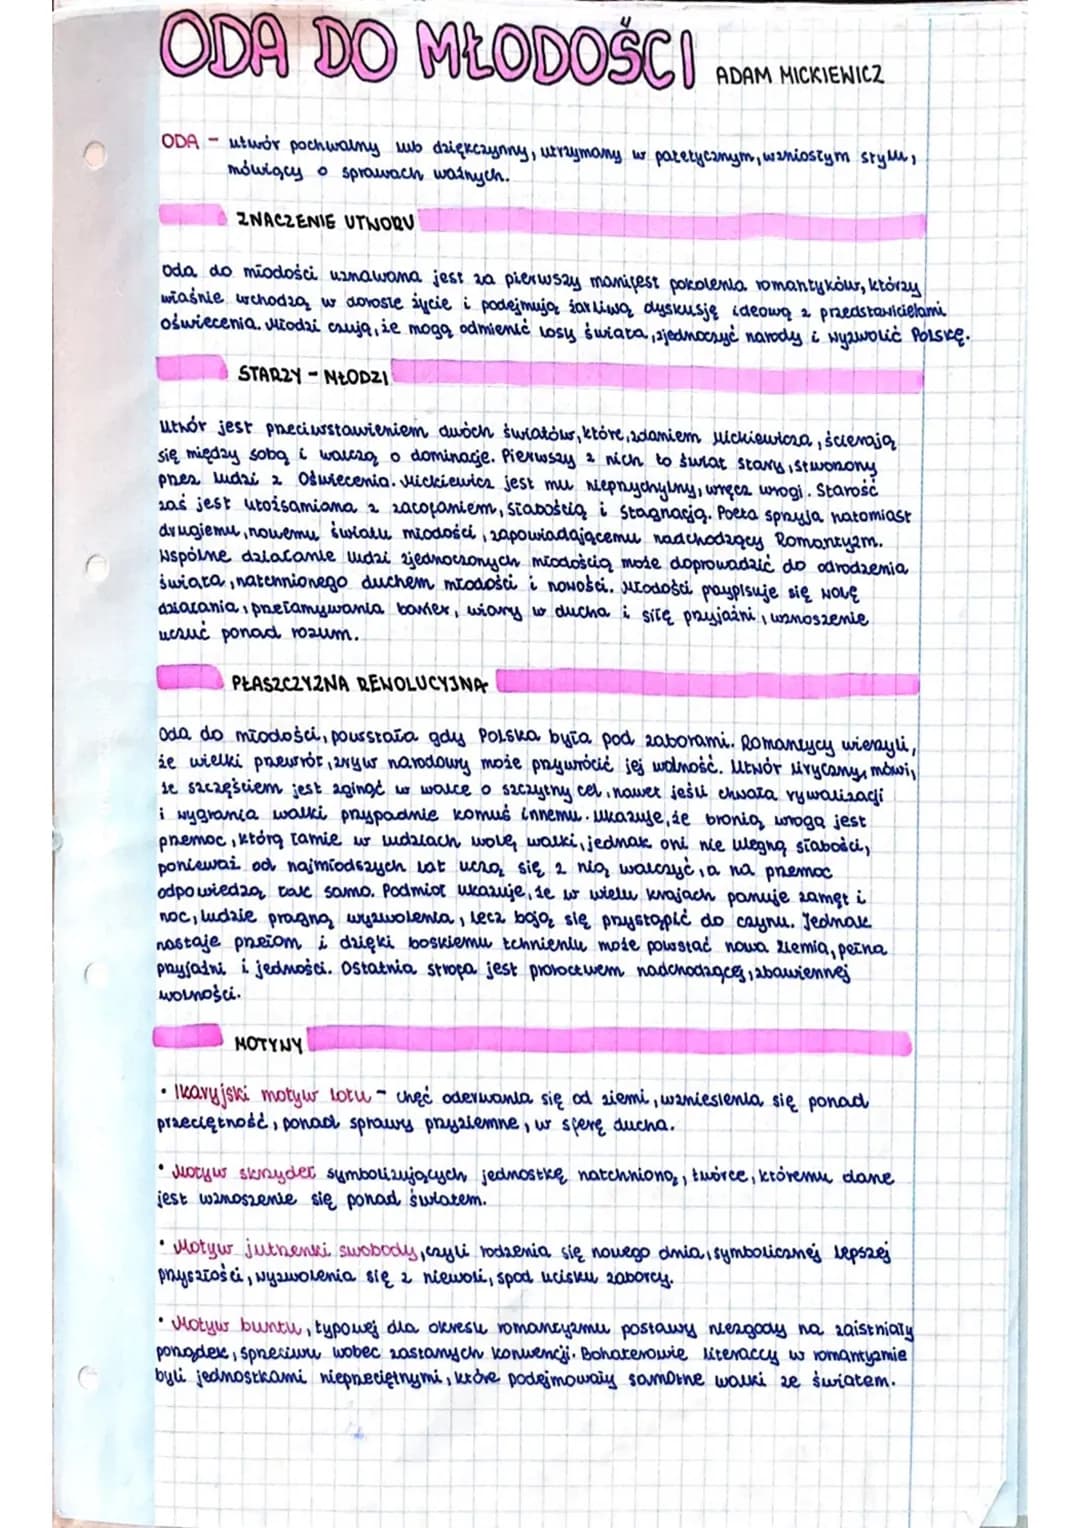 ODA DO MŁODOŚCI ADAM MICKIEWICZ
ODA - utwór pochwalny lub dziękczynny, utrzymany w patetycznym, wzniosłym stylu,
mówiący o sprawach ważnych.
ZNACZENIE UTWORU
Oda do młodości uznawana jest za pierwszy manifest pokolenia romantyków, którzy
właśnie wchodzą w dorosłe życie i podejmują żarliwą dyskusję ideową z przedstawicielami
oświecenia. Młodzi czują, że mogą odmienić losy świata, zjednoczyć narody i wyzwolić Polskę.
STARZY - MŁODZI
Utwór jest przeciwstawieniem dwóch światów, które, zdaniem Mickiewicza, ścierają
się między sobą i walczą o dominację. Pierwszy z nich to świat stary, stworzony
przez ludzi z Oświecenia. Mickiewicz jest mu nieprzychylny, wręcz wrogi. Starość
zaś jest utożsamiana z zacofaniem, słabością i stagnacją. Poeta sprzyja natomiast
drugiemu, nowemu światu młodości, zapowiadającemu nadchodzący Romantyzm.
Wspólne działanie ludzi zjednoczonych młodością może doprowadzić do odrodzenia
świata, natchnionego duchem młodości i nowości. Młodości przypisuje się wolę
działania, przełamywania barier, wiary w ducha i siłę przyjaźni, wznoszenie
uczuć ponad rozum.
PŁASZCZYZNA REWOLUCYJNA
Oda do młodości, powstała gdy Polska była pod zaborami. Romantycy wierzyli,
że wielki przewrót, zryw narodowy może przywrócić jej wolność. Utwór liryczny, mówi,
że szczęściem jest zginąć w walce o szczytny cel, nawet jeśli chwała rywalizacji
i wygrania walki przypadnie komuś innemu. Ukazuje, że bronią wroga jest
przemoc, którą łamie w ludziach wolę walki, jednak oni nie ulegną słabości,
ponieważ od najmłodszych lat uczą się z nią walczyć, a na przemoc
odpowiedzą tak samo. Podmiot ukazuje, że w wielu krajach panuje zamęt i
noc, ludzie pragną wyzwolenia, lecz boją się przystąpić do czynu. Jednak
nastaje przełom i dzięki boskiemu tchnieniu może powstać nowa ziemia, pełna
przyjaźni i jedności. Ostatnia strofa jest proroctwem nadchodzącej, zbawiennej
wolności.
MOTYWY
• Ikaryjski motyw lotu - chęć oderwania się od ziemi, wzniesienia się ponad
przeciętność, ponad sprawy przyziemne, w sferę ducha.
• Motyw skrzydeł symbolizujących jednostkę natchnioną, twórcę, któremu dane
jest wznoszenie się ponad światem.
• Motyw jutrzenki swobody, czyli rodzenia się nowego dnia, symbolicznej lepszej
przyszłości, wyzwolenia się z niewoli, spod ucisku zaborcy.
• Motyw buntu, typowej dla okresu romantyzmu postawy niezgody na zaistniały
porządek, sprzeciwu wobec zastanych konwencji. Bohaterowie literaccy w romantyzmie
byli jednostkami nieprzeciętnymi, które podejmowały samotne walki ze światem.